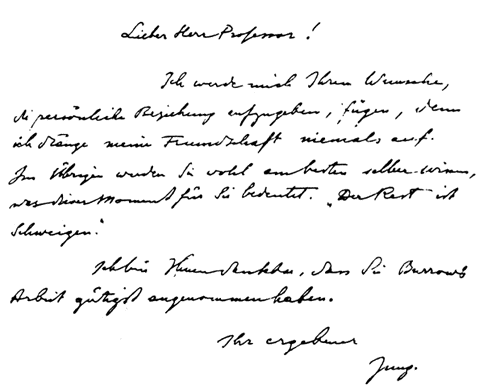 Lieber Herr Professor!
Ich werde mich Ihrem Wunsche,
die persönliche Beziehung aufzugeben, fügen, denn
ich dränge meine Freundschaft niemals auf.
Im Übrigen werden Sie wohl am besten selber wissen,
was dieser Moment für Sie bedeutet. „Der Rest ist
Schweigen."
Ich bin Ihnen dankbar, dass Sie Burrows
Arbeit gütigst angenommen haben.
Ihr ergebener
Jung.